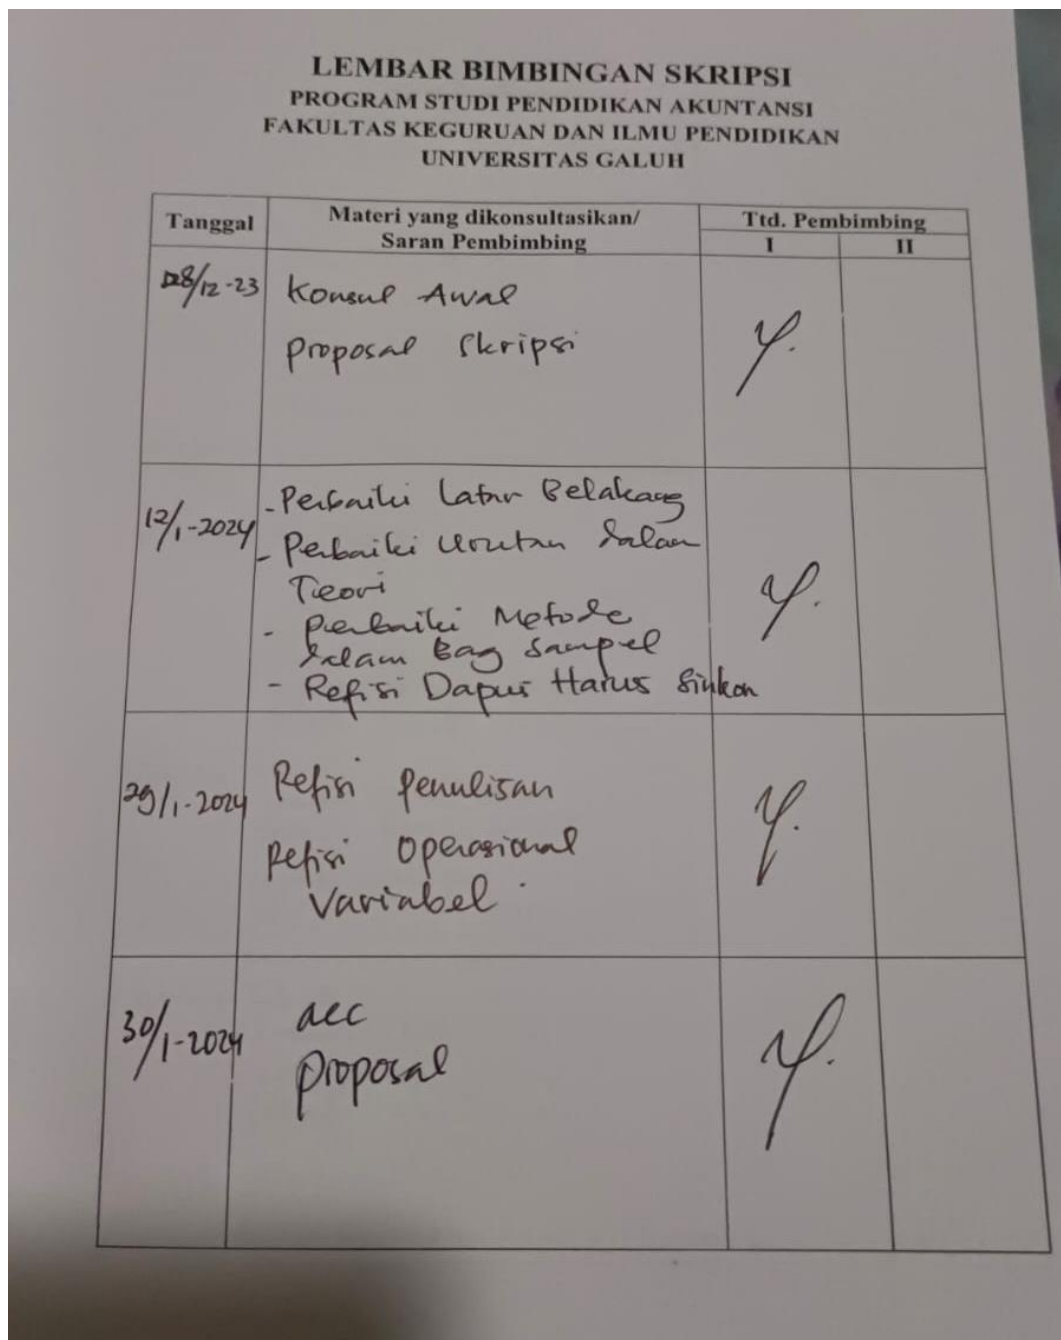 LEMBAR BIMBINGAN SKRIPSI
PROGRAM STUDI PENDIDIKAN AKUNTANSI
FAKULTAS KEGURUAN DAN ILMU PENDIDIKAN
UNIVERSITAS GALUH
Tanggal
Materi yang dikonsultasikan/
Saran Pembimbing
Ttd. Pembimbing
I II
28/12-23
Konsul Awal
Proposal Skripsi
12/1-2024
- Perbaiki Latar Belakang
- Perbaiki Urutan dalam
Teori
- Perbaiki Metode
dalam Bag Sampel
- Refisi Dapus Harus Sinkon
29/1-2024
Refisi Penulisan
Refisi Operasional
Variabel
30/1-2024
acc
Proposal